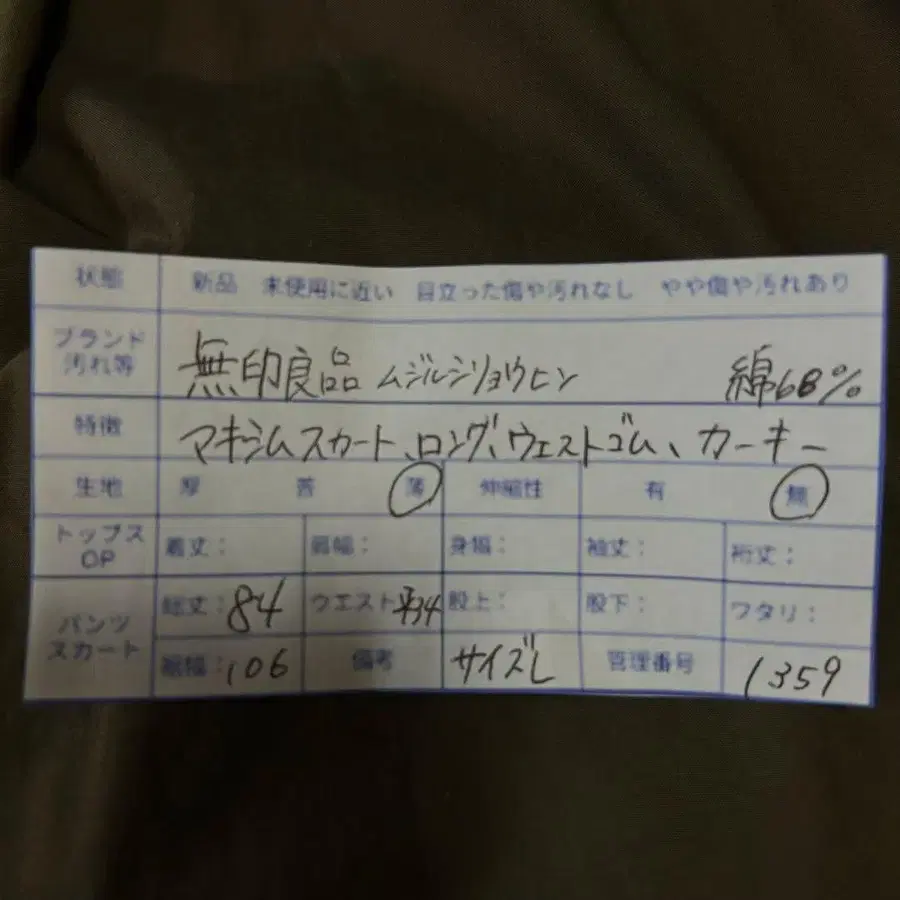 状態 新品 未使用に近い 目立った傷や汚れなし やや傷や汚れあり
ブランド 汚れ等 無印良品 ムジルシリョウヒン 綿68%
特徴 マキシムスカート、ロング、ウェストゴム、カーキー
生地 厚 普 薄 伸縮性 有 無
トップス OP 着丈: 肩幅: 身幅: 袖丈: 裄丈:
パンツ スカート 総丈:84 ウエスト平34 股上: 股下: ワタリ:
裾幅:106 備考 サイズL 管理番号 1359